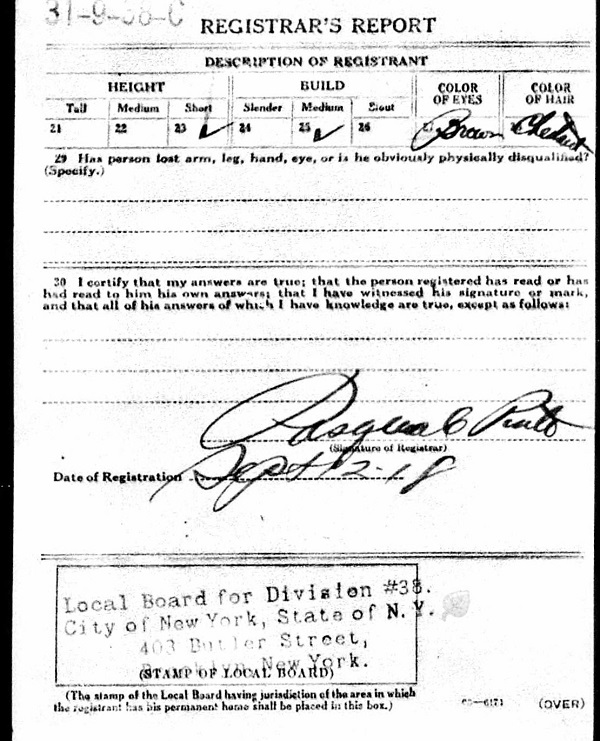 31-9-38-C
REGISTRAR'S REPORT
DESCRIPTION OF REGISTRANT
HEIGHT BUILD COLOR OF EYES COLOR OF HAIR
Tall Medium Short Slender Medium Stout
21 22 23 ✓ 24 25 ✓ 26 27 Brown Chestnut
29 Has person lost arm, leg, hand, eye, or is he obviously physically disqualified?
(Specify.)
30 I certify that my answers are true; that the person registered has read or has
had read to him his own answers; that I have witnessed his signature or mark,
and that all of his answers of which I have knowledge are true, except as follows:
(Signature of Registrar)
Date of Registration Sept 12-18
Local Board for Division #38.
City of New York, State of N.Y.
403 Butler Street,
Brooklyn New York.
(STAMP OF LOCAL BOARD)
(The stamp of the Local Board having jurisdiction of the area in which
the registrant has his permanent home shall be placed in this box.)
03-6171 (OVER)